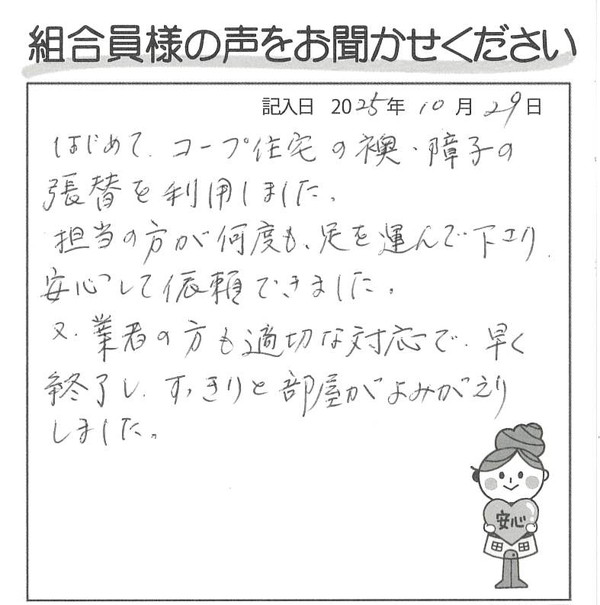 組合員様の声をお聞かせください
記入日 2025年 10月 29日
はじめて、コープ住宅の襖・障子の
張替を利用しました。
担当の方が何度も、足を運んで下さり、
安心して依頼できました。
又、業者の方も適切な対応で、早く
終了し、すっきりと部屋がよみがえり
しました。
安心